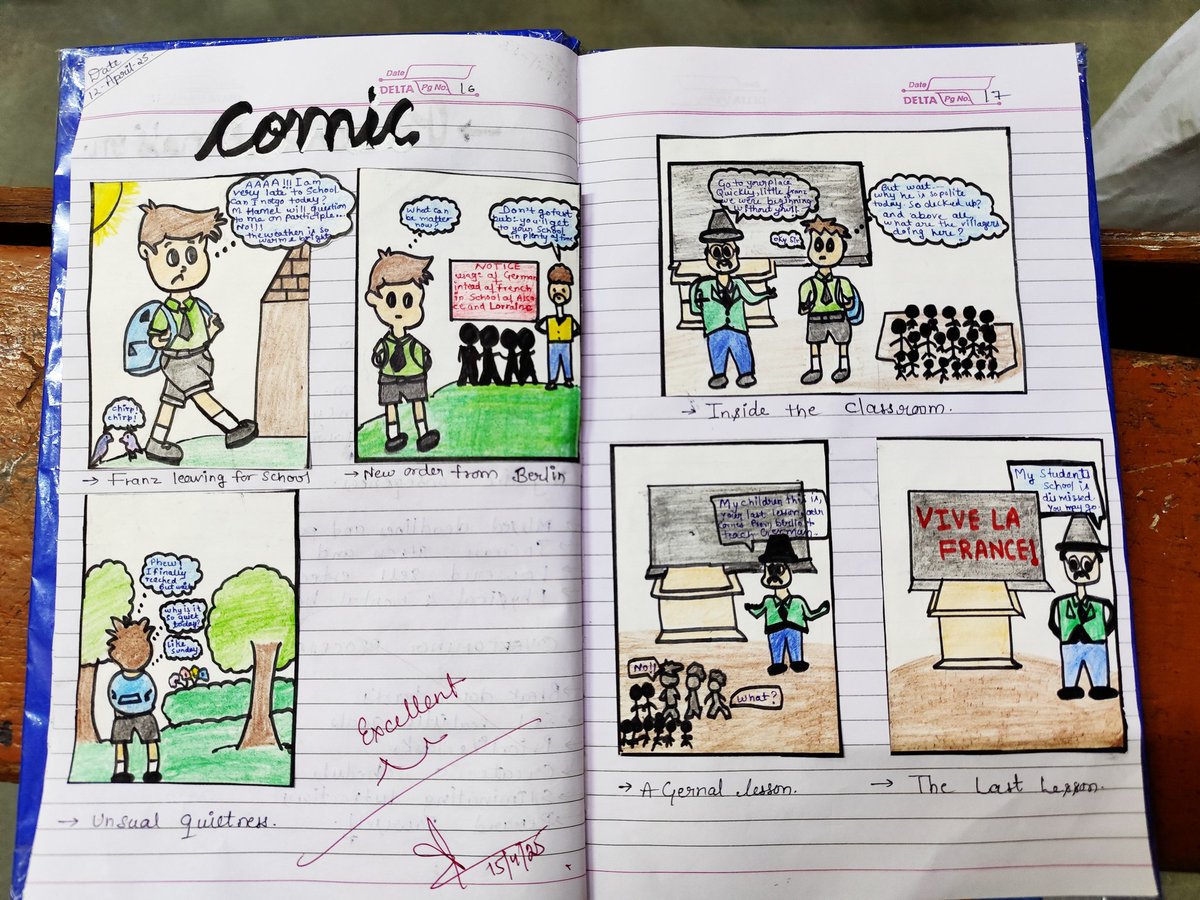 Date
12-April-25
Date
DELTA Pg No. 16
comic
AAAA!!! I am
very late to School
Can I not go today?
M Hamel will question
to me on Participle...
No!!!
the weather is so
warm & bright
chirp!
chirp!
→ Franz leaving for School
What can
be matter
now?
Don't go fast
cub: you'll get
to your School
in plenty of time
NOTICE
usage of German
intead of French
in School of Alsa
ce and Lorraine
→ New order from Berlin
Phew!
I finally
reached
but wait
why is it
so quiet
today?
like
sunday
→ Unsual quietness.
Excellent
15/4/25
Date
DELTA Pg No. 17
Go to your place
Quickly, little franz
we were beginning
without you!!
oky Sir
But wait...
why he is so polite
today. So decked up?
and above all
what are the villagers
doing here?
→ Inside the classroom.
My children this is
your last lesson, order
comes from berlin to
teach German.
No!!
What?
→ A Gernal lesson.
VIVE LA
FRANCE!
My Students
School is
dismissed
You may go
→ The Last Lesson.